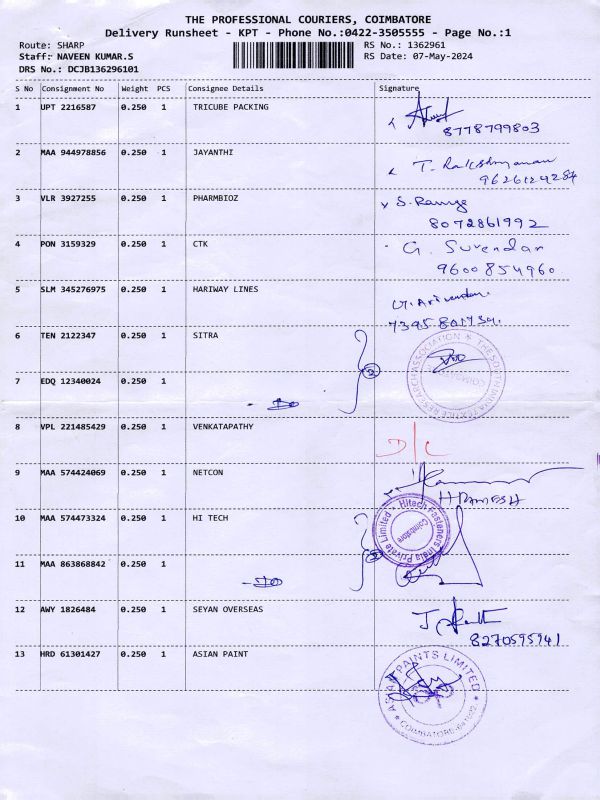 THE PROFESSIONAL COURIERS, COIMBATORE
Delivery Runsheet - KPT - Phone No.:0422-3505555 - Page No.:1
Route: SHARP RS No.: 1362961
Staff: NAVEEN KUMAR.S RS Date: 07-May-2024
DRS No.: DCJB136296101
S No Consignment No Weight PCS Consignee Details Signature
1 UPT 2216587 0.250 1 TRICUBE PACKING
8778799803
2 MAA 944978856 0.250 1 JAYANTHI
T.
9626124284
3 VLR 3927255 0.250 1 PHARMBIOZ S.
8072861992
4 PON 3159329 0.250 1 CTK G. Surendar
9600854960
5 SLM 345276975 0.250 1 HARIWAY LINES
6 TEN 2122347 0.250 1 SITRA
THE SOUTH INDIA TEXTILE RESEARCH ASSOCIATION
7 EDQ 12340024 0.250 1
8 VPL 221485429 0.250 1 VENKATAPATHY
D/L
9 MAA 574424069 0.250 1 NETCON
H RAMESH
10 MAA 574473324 0.250 1 HI TECH
Hitech Fasteners India Private Limited
Coimbatore
11 MAA 863868842 0.250 1
12 AWY 1826484 0.250 1 SEYAN OVERSEAS
8270595941
13 HRD 61301427 0.250 1 ASIAN PAINT
ASIAN PAINTS LIMITED